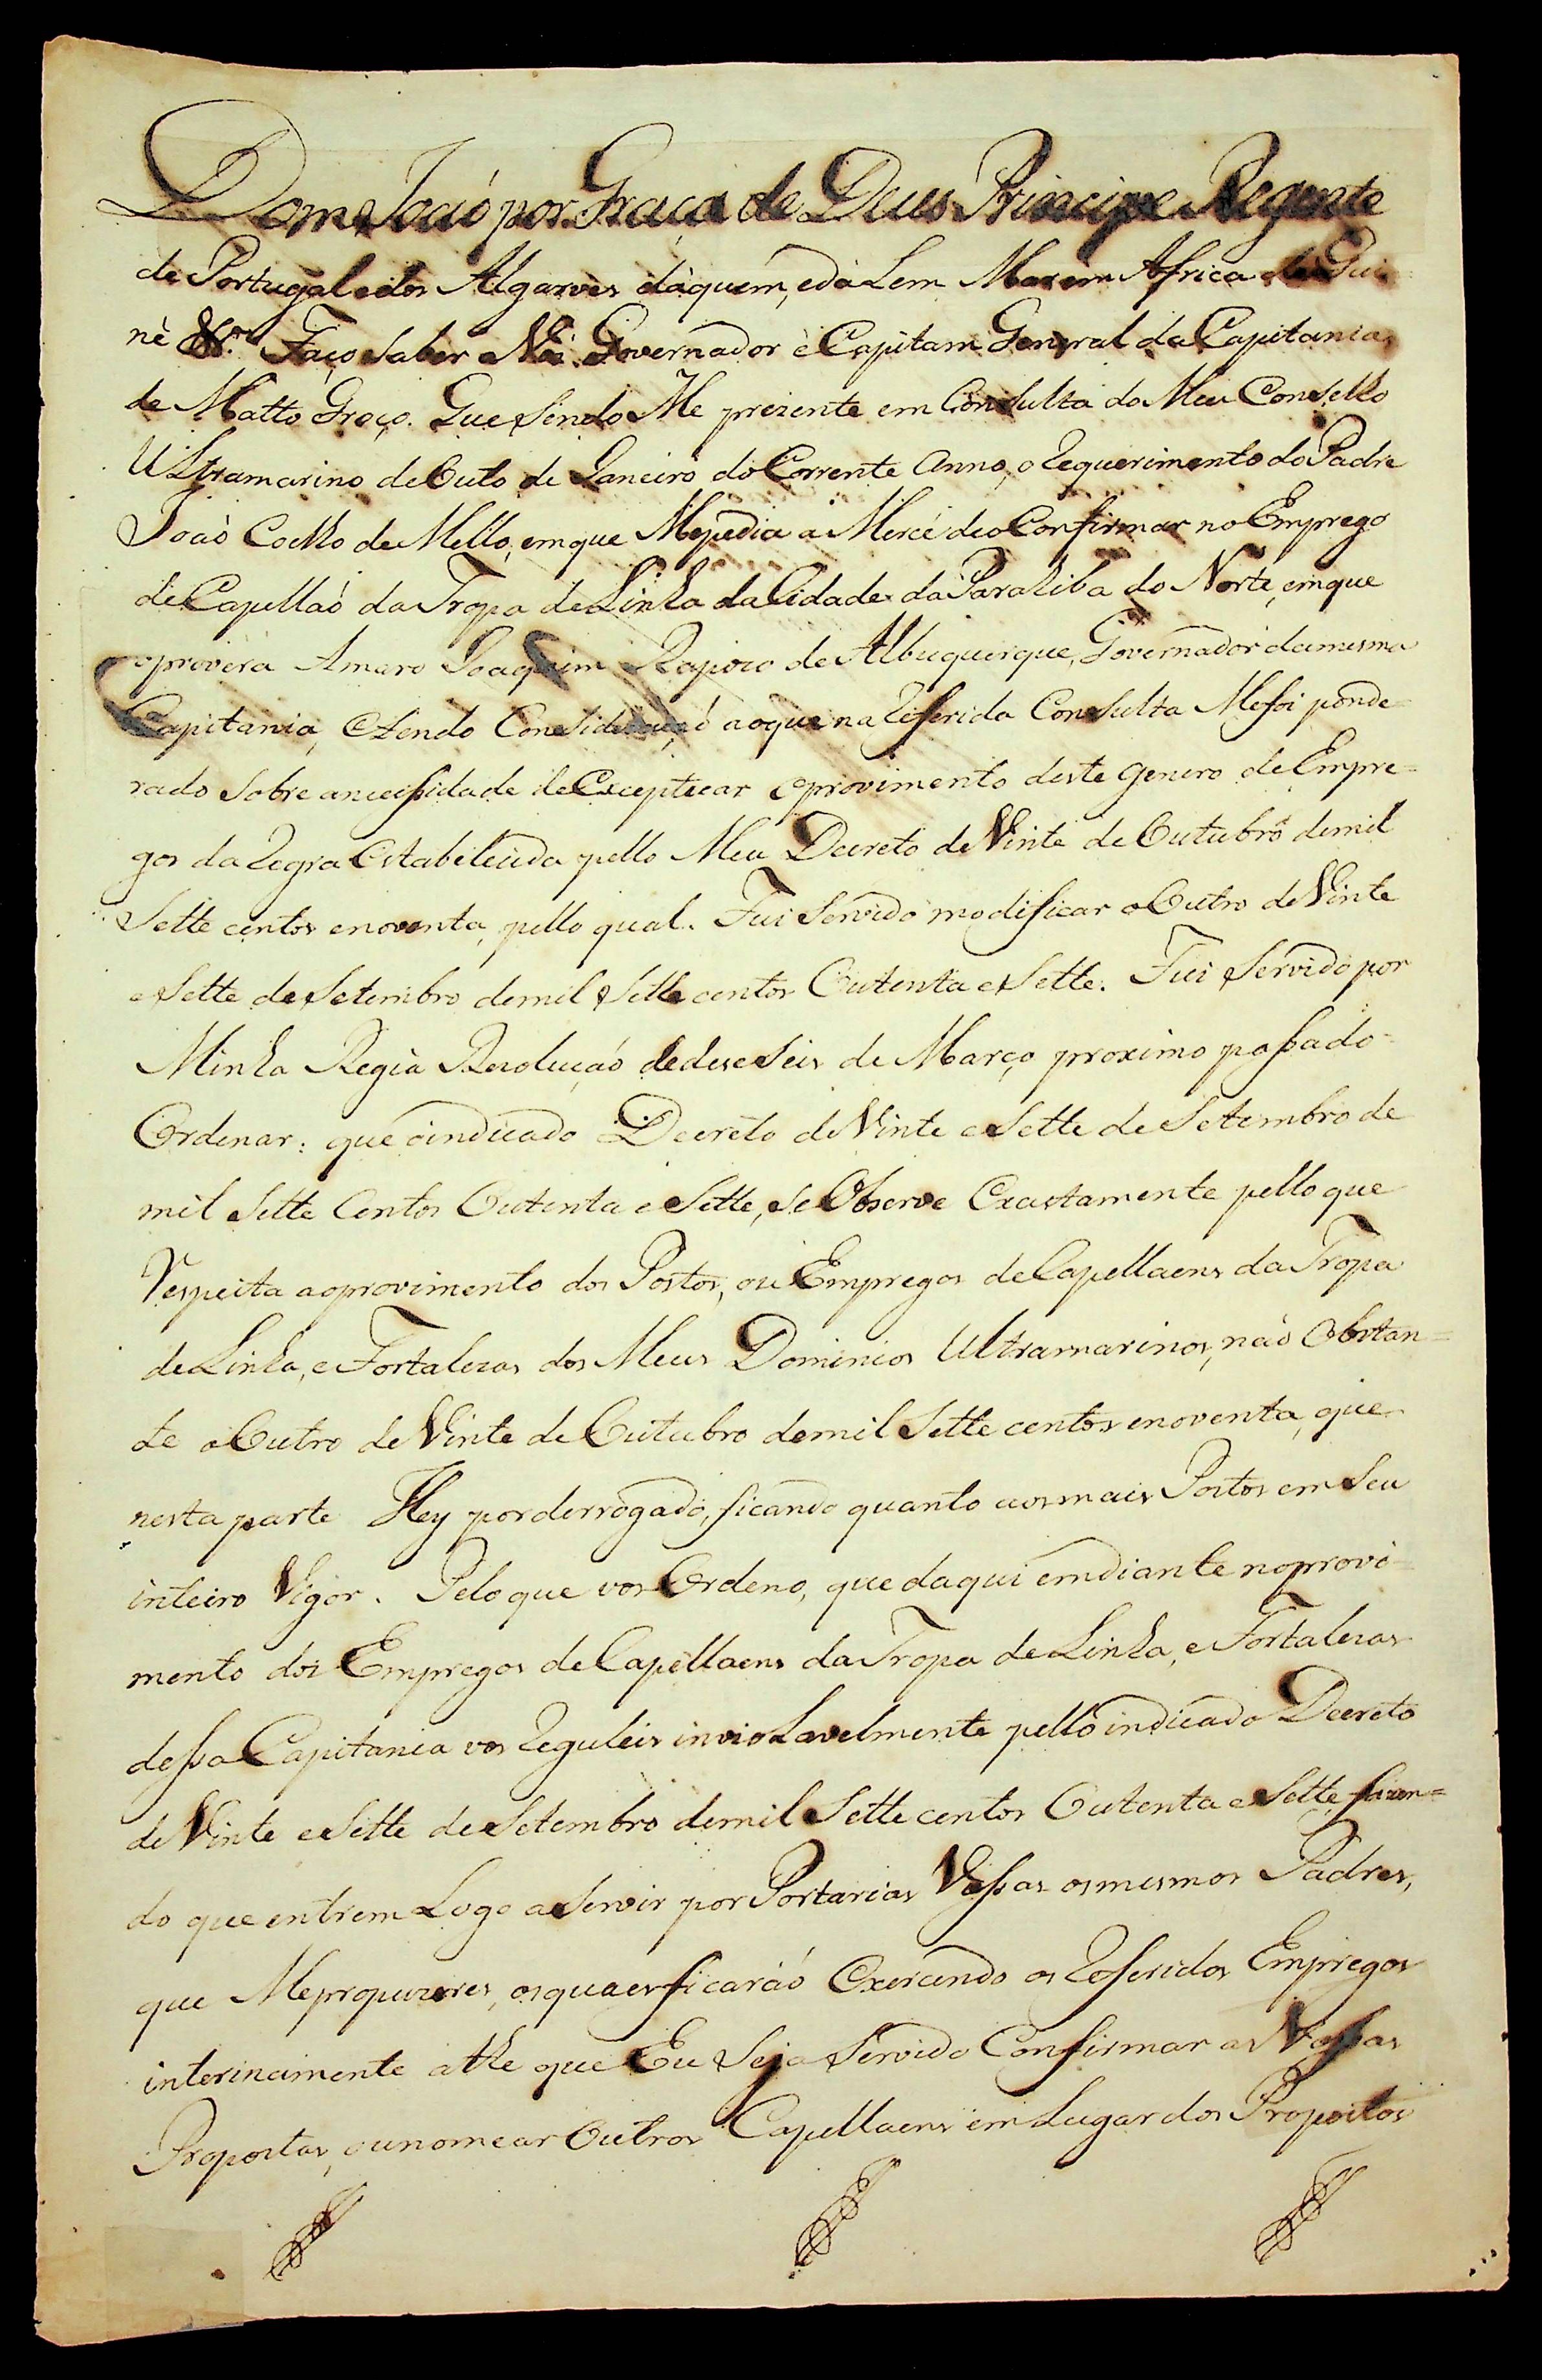 Dom Joaõ por Graça de Deus Principe Regente
de Portugal e dos Algarves dàquem, edàLem Mar em Africa de Gui=
nè &.ª Faço Saber a Vós Governador è Capitam General da Capitania
de Matto Groço. Que sendo Me prezente em Consulta do Meu Conselho
Ultramarino de Outo de Janeiro do Corrente Anno, o Requerimento do Padre
Joaõ Coelho de Mello, emque Mepedia a Mercê deo Confirmar no Emprego
de Capellaõ da Tropa de Linha da Cidade da Parahiba do Norte, emque
oprovèra Amaro Joaquim Rapozo de Albuquerque, Governador damesma
Capitania, Etendo Consideraçaõ aoque na Referida Consulta Mefoi ponde=
rado Sobre aneceſsidade de Exceptuar oprovimento deste genero de Empre=
gos da Regra Estabelecida pello Meu Decreto de Vinte de Outubro demil
Sette centos enoventa, pello qual. Fui Servido modificar o Outro de Vinte
e Sette de Setembro demil Sette centos Outenta e Sette. Fui Servido por
Minha Regia Rezoluçaõ dedeze Seis de Março proximo paſsado=
Ordenar: que oindicado Decreto de Vinte e Sette de Setembro de
mil Sette Centos Outenta e Sette, se Observe Exactamente pello que
Respeita aoprovimento dos Postos, ou Empregos de Capellaens da Tropa
de Linha, e Fortalezas dos Meus Dominios Ultramarinos, naõ Obstan=
te o Outro de Vinte de Outubro demil Sette centos enoventa, que
nesta parte Hey porderrogado, ficando quanto aosmais Postos em Seu
inteiro Vigor. Pelo que vos Ordeno, que daqui emdiante noprovi=
mento dos Empregos de Capellaens da Tropa de Linha, e Fortalezas
deſsa Capitania vos Reguleis inviolavelmente pello indicado Decreto
de Vinte e Sette de Setembro demil Sette centos Outenta e Sette, fazen=
do que entrem Logo a Servir por Portarias Voſsas osmesmos Padres,
que Mepropuzeres, osquaes ficaraõ Exercendo os Referidos Empregos
interinamente athe que Eu Seja Servido Confirmar as Voſsas
Propostas, ounomear Outros Capellaens em Lugar dos Propostos